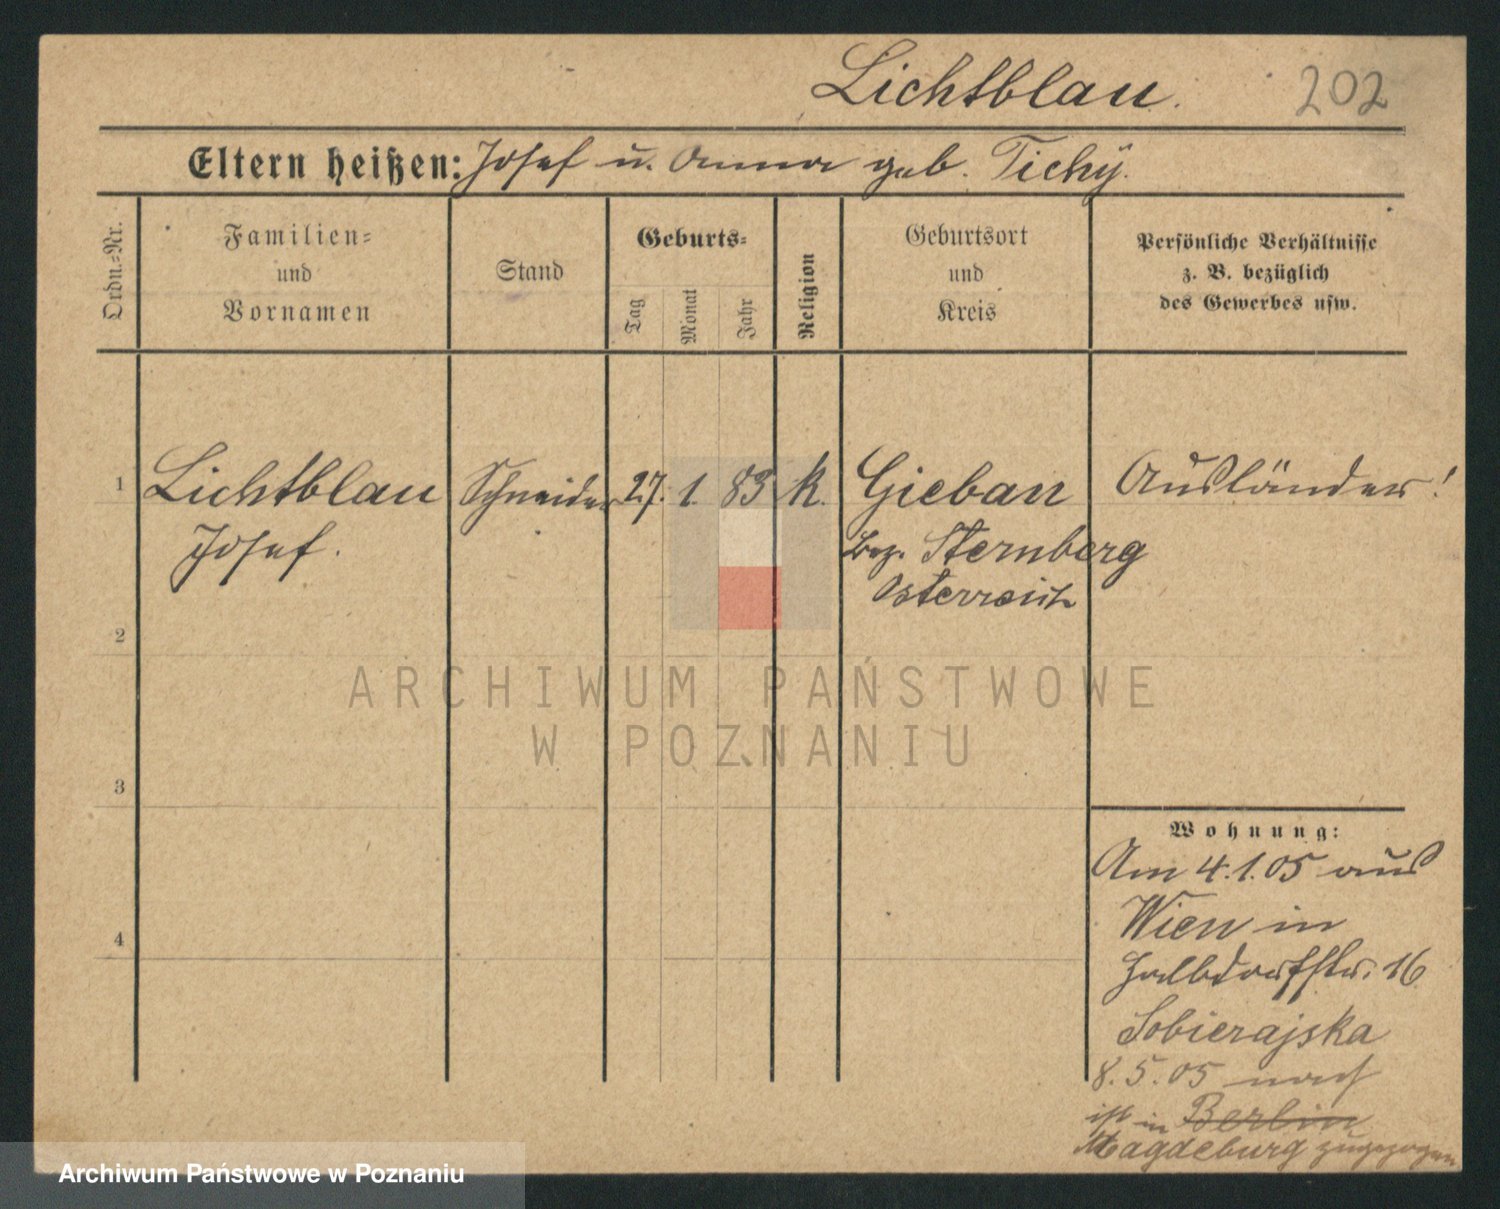 Lichtblau. 202
Eltern heißen: Josef u. Anna geb. Tichy.
Ordn.-Nr.
Familien-
und
Vornamen
Stand
Geburts-
Tag
Monat
Jahr
Religion
Geburtsort
und
Kreis
Persönliche Verhältnisse
z. B. bezüglich
des Gewerbes usw.
1 Lichtblau Schneider 27. 1. 83 k. Gieban Ausländer!
Josef. Bez. Sternberg
Österreich
2
ARCHIWUM PAŃSTWOWE
W POZNANIU
3
Wohnung:
Am 4.1.05 aus
Wien in
4
Halbdorfstr. 16
Sobierajska
8.5.05 nach
Berlin
ist in
Magdeburg zugezogen
Archiwum Państwowe w Poznaniu